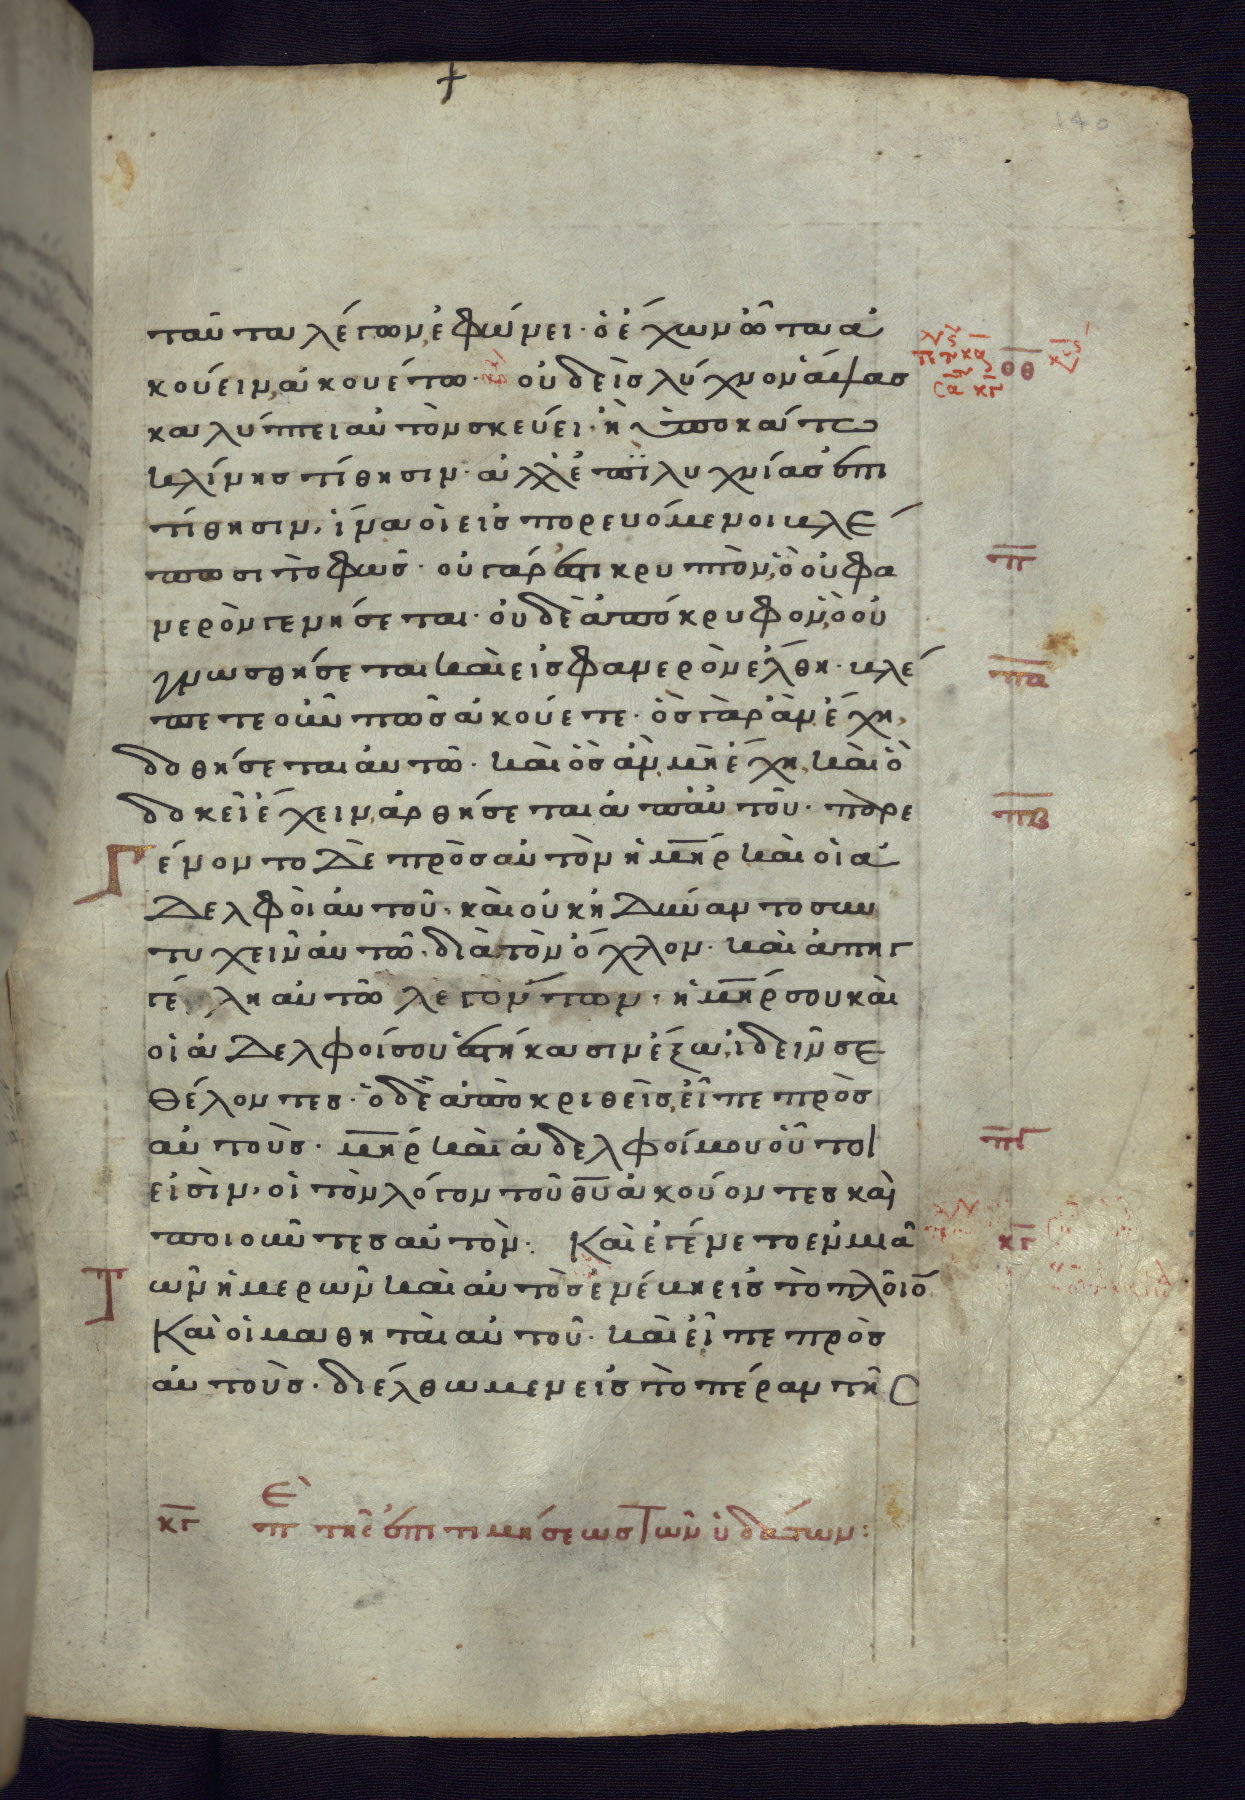 140
ταῦτα λέγων, ἐφώνει· ὁ ἔχων ὦτα ἀ
κούειν, ἀκουέτω· οὐδεὶς λύχνον ἅψας
καλύπτει αὐτὸν σκεύει· ἢ ὑποκάτω
κλίνης τίθησιν· ἀλλ' ἐπὶ λυχνίας ἐπι
τίθησιν, ἵνα οἱ εἰσπορευόμενοι βλέ
πωσι τὸ φῶς· οὐ γάρ ἐστι κρυπτὸν, ὃ οὐ φα
νερὸν γενήσεται· οὐδὲ ἀπόκρυφον, ὃ οὐ
γνωσθήσεται καὶ εἰς φανερὸν ἔλθη· βλέ
πετε οὖν πῶς ἀκούετε· ὃς γὰρ ἂν ἔχη,
δοθήσεται αὐτῶ· καὶ ὃς ἂν μὴ ἔχη, καὶ ὃ
δοκεῖ ἔχειν, ἀρθήσεται ἀπ' αὐτοῦ· Παρε
γένοντο δὲ πρὸς αὐτὸν ἡ μηρ καὶ οἱ ἀ
δελφοὶ αὐτοῦ· καὶ οὐκ ἠδύναντο συν
τυχεῖν αὐτῶ· διὰ τὸν ὄχλον· καὶ ἀπηγ
γέλη αὐτῶ λεγόντων· ἡ μηρ σου καὶ
οἱ ἀδελφοί σου ἑστήκασιν ἔξω, ἰδεῖν σε
θέλοντες· ὁ δὲ ἀποκριθεὶς, εἶπε πρὸς
αὐτούς· μηρ καὶ ἀδελφοί μου οὗτοί
εἰσὶν, οἱ τὸν λόγον τοῦ θυ ἀκούοντες καὶ
ποιοῦντες αὐτόν· Καὶ ἐγένετο ἐν μιᾶ
τῶν ἡμερῶν καὶ αὐτὸς ἐνέβη εἰς τὸ πλοῖο
Καὶ οἱ μαθηταὶ αὐτοῦ· καὶ εἶπε πρὸς
αὐτούς· διέλθωμεν εἰς τὸ πέραν τῆς
οθ
π
πα
πβ
πγ
κγ
κγ πε τῆς ἐπιτιμήσεως τῶν ὑδάτων: